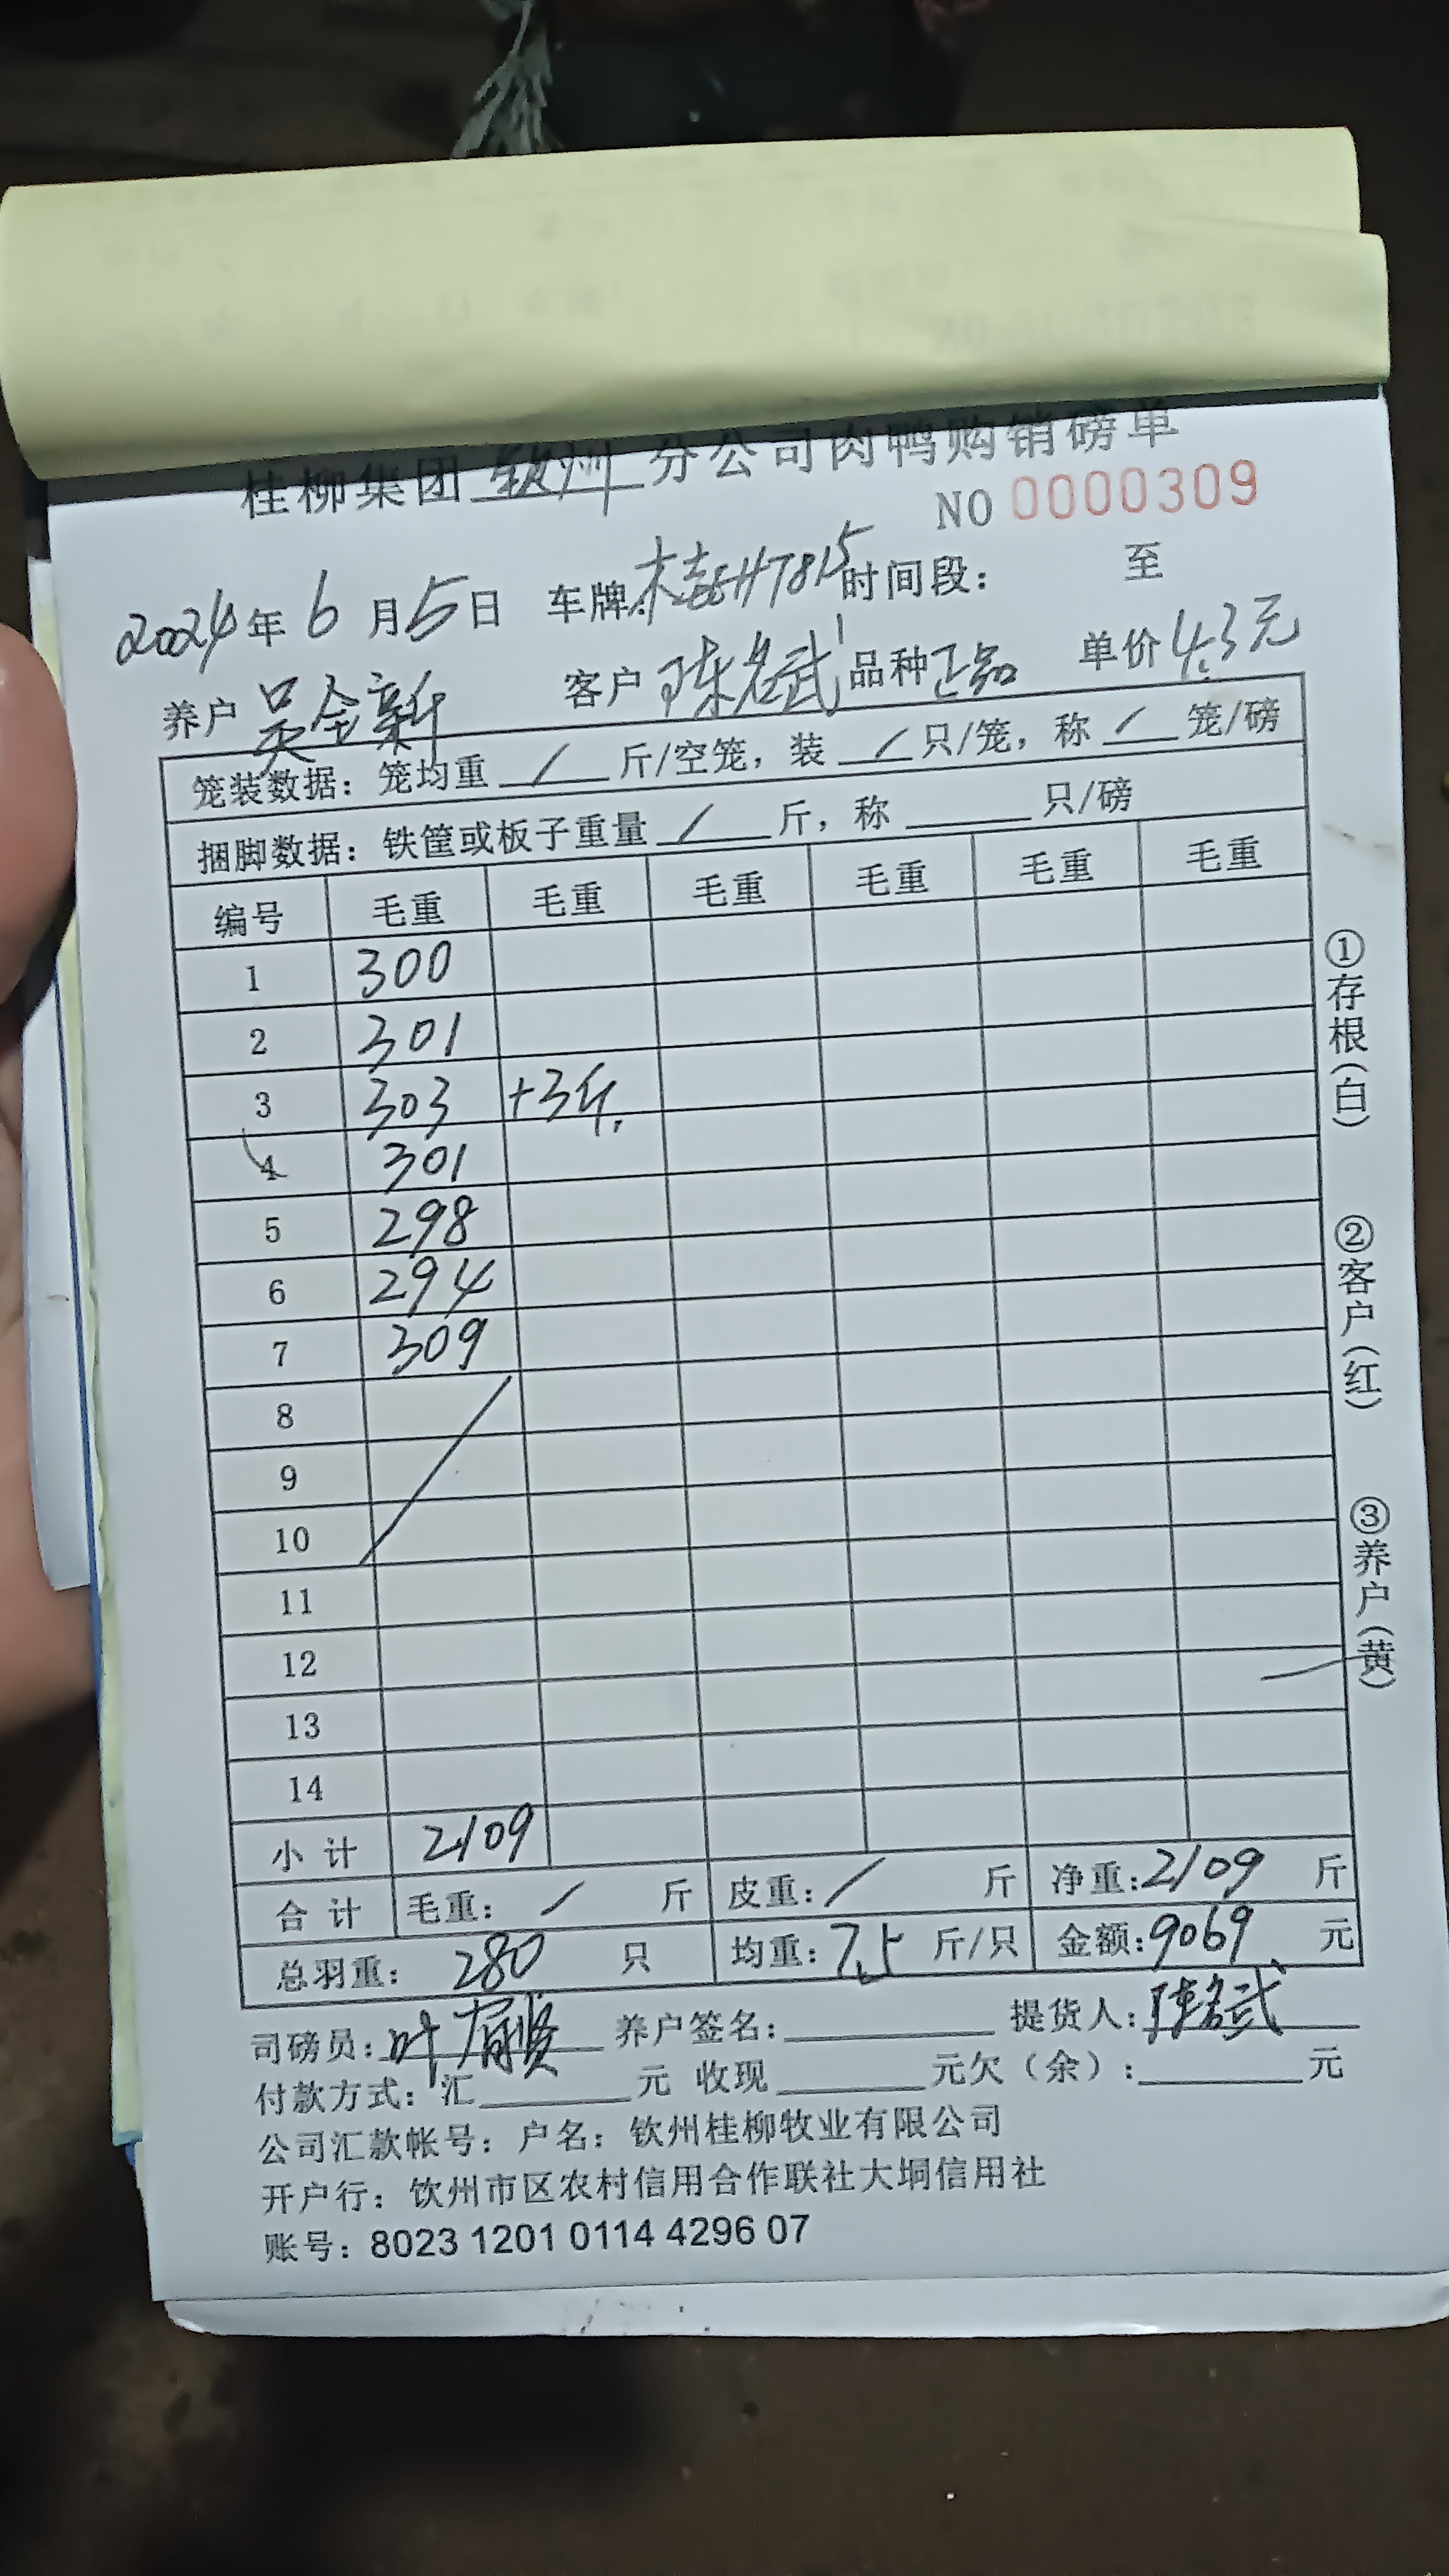 桂柳集团 钦州 分公司肉鸭购销磅单
NO 0000309
2024年6月5日 车牌: H7815 时间段: 至
养户 吴全新 客户 陈名武 品种 正品 单价 4.3元
笼装数据: 笼均重 / 斤/空笼, 装 / 只/笼, 称 / 笼/磅
捆脚数据: 铁筐或板子重量 / 斤, 称 只/磅
编号 毛重 毛重 毛重 毛重 毛重 毛重
1 300
2 301
3 303 +3斤.
4 301
5 298
6 294
7 309
8
9
10
11
12
13
14
小计 2109
合计 毛重: / 斤 皮重: / 斤 净重: 2109 斤
总羽重: 280 只 均重: 7.5 斤/只 金额: 9069 元
司磅员: 叶 贤 养户签名: 提货人: 陈名武
付款方式: 汇 元 收现 元欠(余): 元
公司汇款帐号: 户名: 钦州桂柳牧业有限公司
开户行: 钦州市区农村信用合作联社大垌信用社
账号: 8023 1201 0114 4296 07
①存根(白)
②客户(红)
③养户(黄)